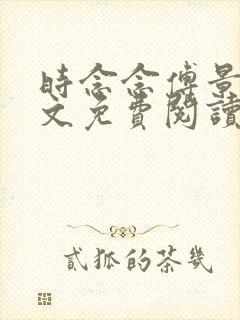 時念念傅景
文免費閱讀
貳狐的茶幾